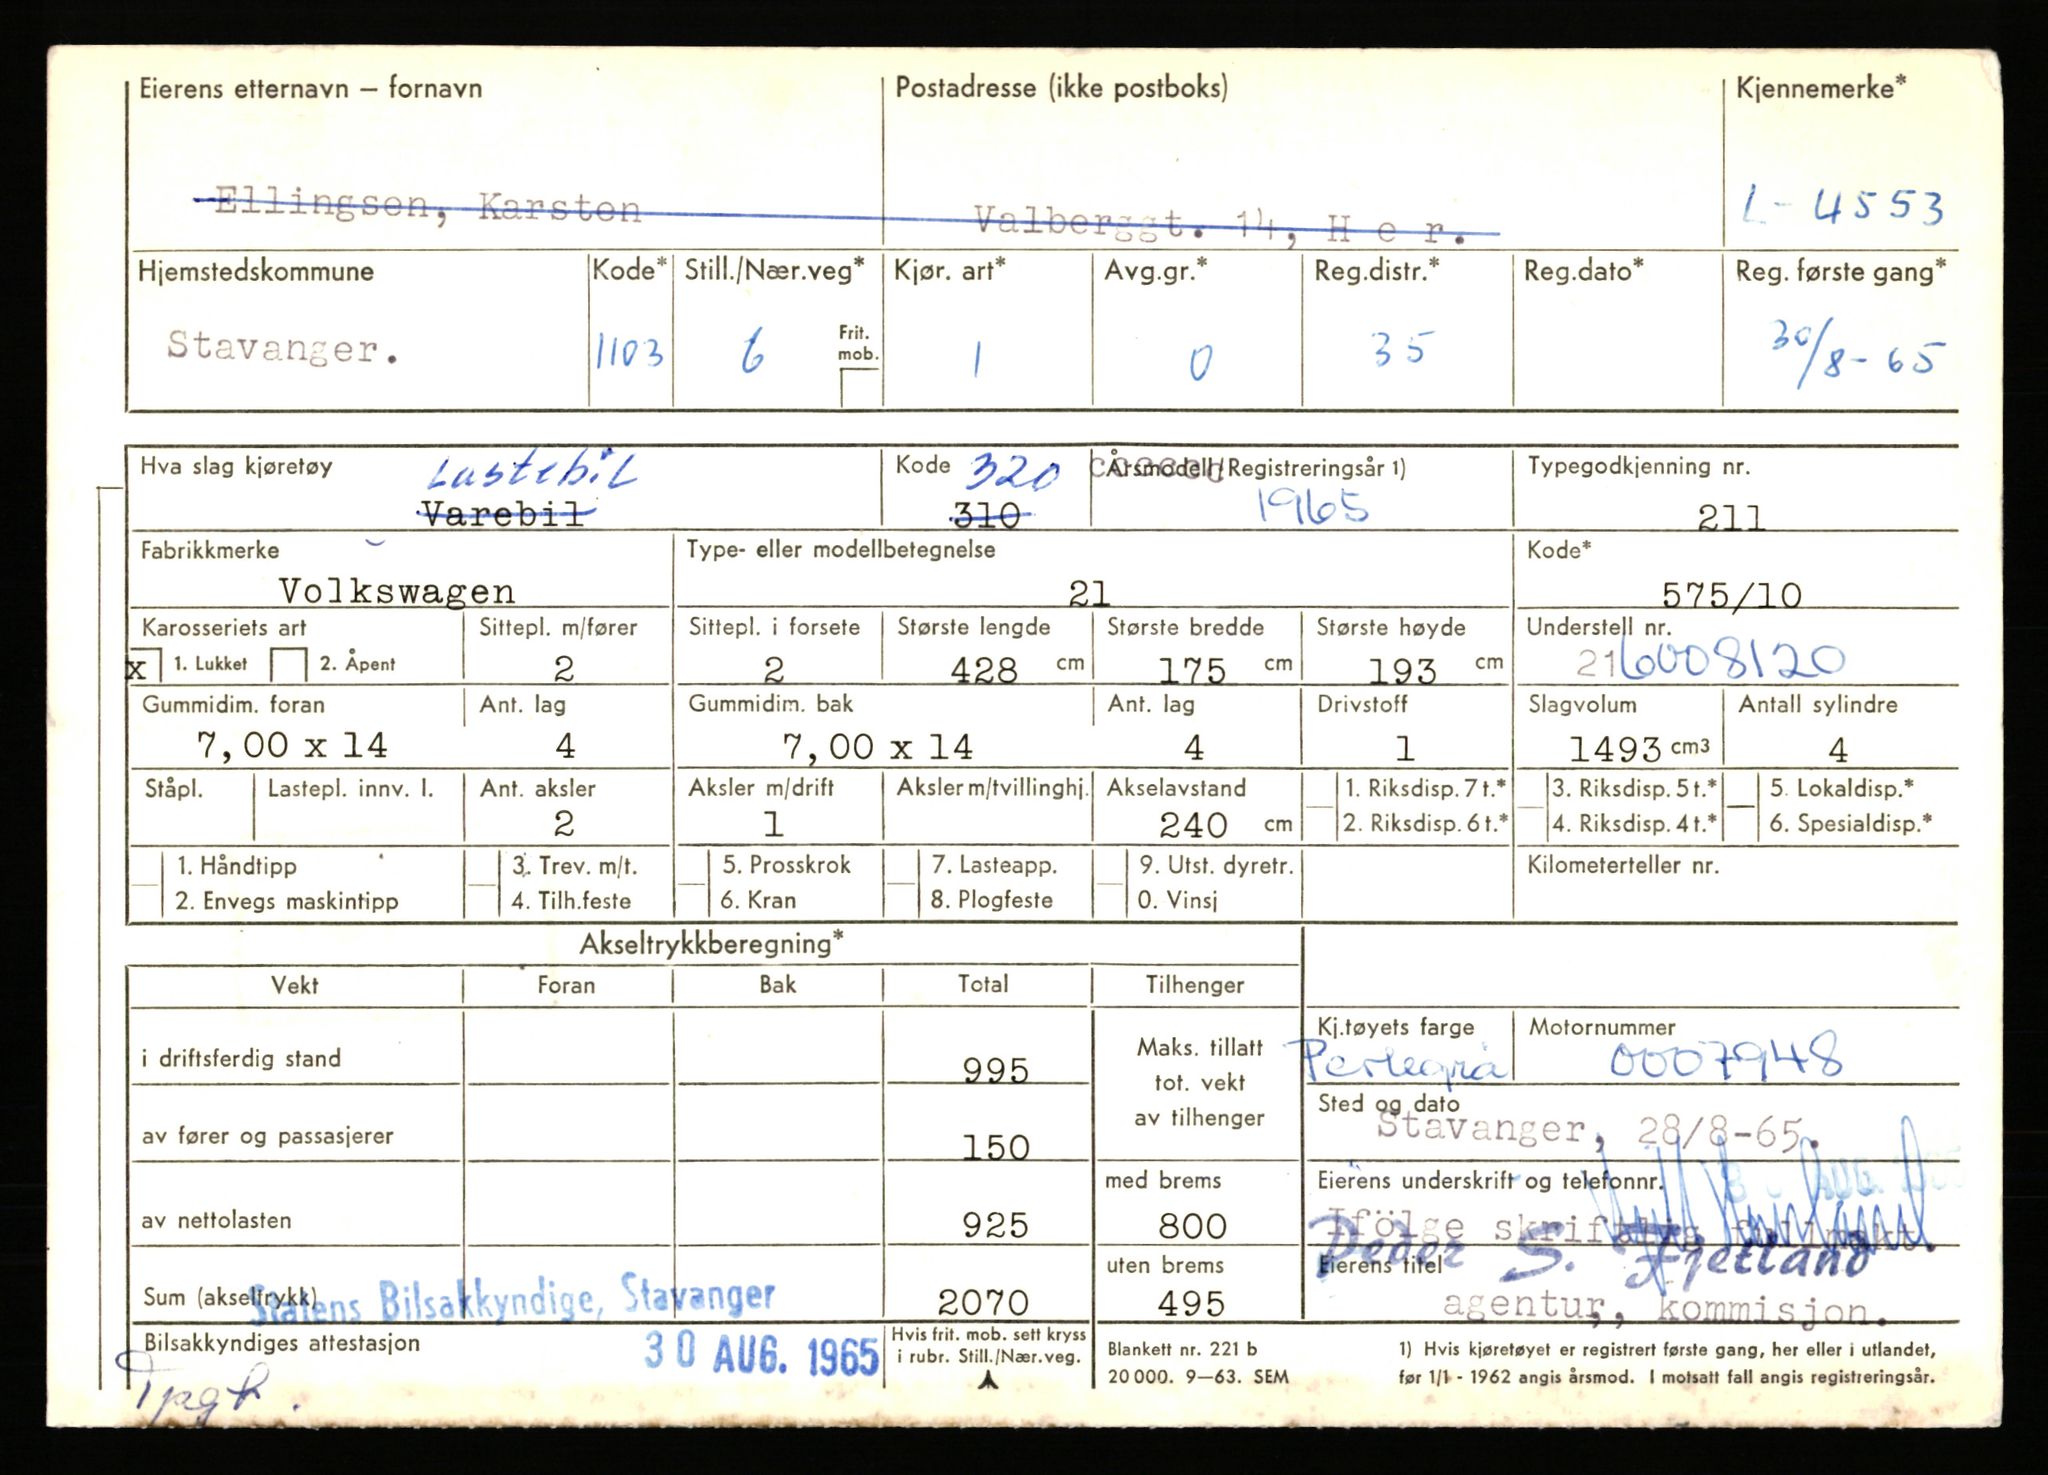 Eierens etternavn – fornavn
Postadresse (ikke postboks)
Kjennemerke*
Ellingsen, Karsten
Valberggt. 14, H e r.
L- 4553
Hjemstedskommune
Kode*
Still./Nær.veg*
Kjør. art*
Avg.gr.*
Reg.distr.*
Reg.dato*
Reg. første gang*
Stavanger.
1103
6
Frit. mob.
1
0
35
30/8-65
Hva slag kjøretøy
Lastebil
Varebil
Kode
320
310
Årsmodell/Registreringsår 1)
1965
Typegodkjenning nr.
211
Fabrikkmerke
Volkswagen
Type- eller modellbetegnelse
21
Kode*
575/10
Karosseriets art
x 1. Lukket
2. Åpent
Sittepl. m/fører
2
Sittepl. i forsete
2
Største lengde
428 cm
Største bredde
175 cm
Største høyde
193 cm
Understell nr.
216008120
Gummidim. foran
7,00 x 14
Ant. lag
4
Gummidim. bak
7,00 x 14
Ant. lag
4
Drivstoff
1
Slagvolum
1493 cm3
Antall sylindre
4
Ståpl.
Lastepl. innv. l.
Ant. aksler
2
Aksler m/drift
1
Aksler m/tvillinghj.
Akselavstand
240 cm
1. Riksdisp. 7 t.*
2. Riksdisp. 6 t.*
3. Riksdisp. 5 t.*
4. Riksdisp. 4 t.*
5. Lokaldisp.*
6. Spesialdisp.*
1. Håndtipp
2. Envegs maskintipp
3. Trev. m/t.
4. Tilh.feste
5. Prosskrok
6. Kran
7. Lasteapp.
8. Plogfeste
9. Utst. dyretr.
0. Vinsj
Kilometerteller nr.
Akseltrykkberegning*
Vekt
Foran
Bak
Total
Tilhenger
i driftsferdig stand
995
Maks. tillatt
tot. vekt
av tilhenger
Kj.tøyets farge
Perlegrå
Motornummer
0007948
av fører og passasjerer
150
Sted og dato
Stavanger, 28/8-65.
av nettolasten
925
med brems
800
Eierens underskrift og telefonnr.
Ifölge skriftlig fullmakt.
Peder S. Fjetland
Sum (akseltrykk)
2070
uten brems
495
Eierens titel
agentur, kommisjon.
Statens Bilsakkyndige, Stavanger
30 AUG. 1965
Bilsakkyndiges attestasjon
Tpgk.
Hvis frit. mob. sett kryss
i rubr. Still./Nær.veg.
Blankett nr. 221 b
20 000. 9–63. SEM
1) Hvis kjøretøyet er registrert første gang, her eller i utlandet,
før 1/1 - 1962 angis årsmod. I motsatt fall angis registreringsår.